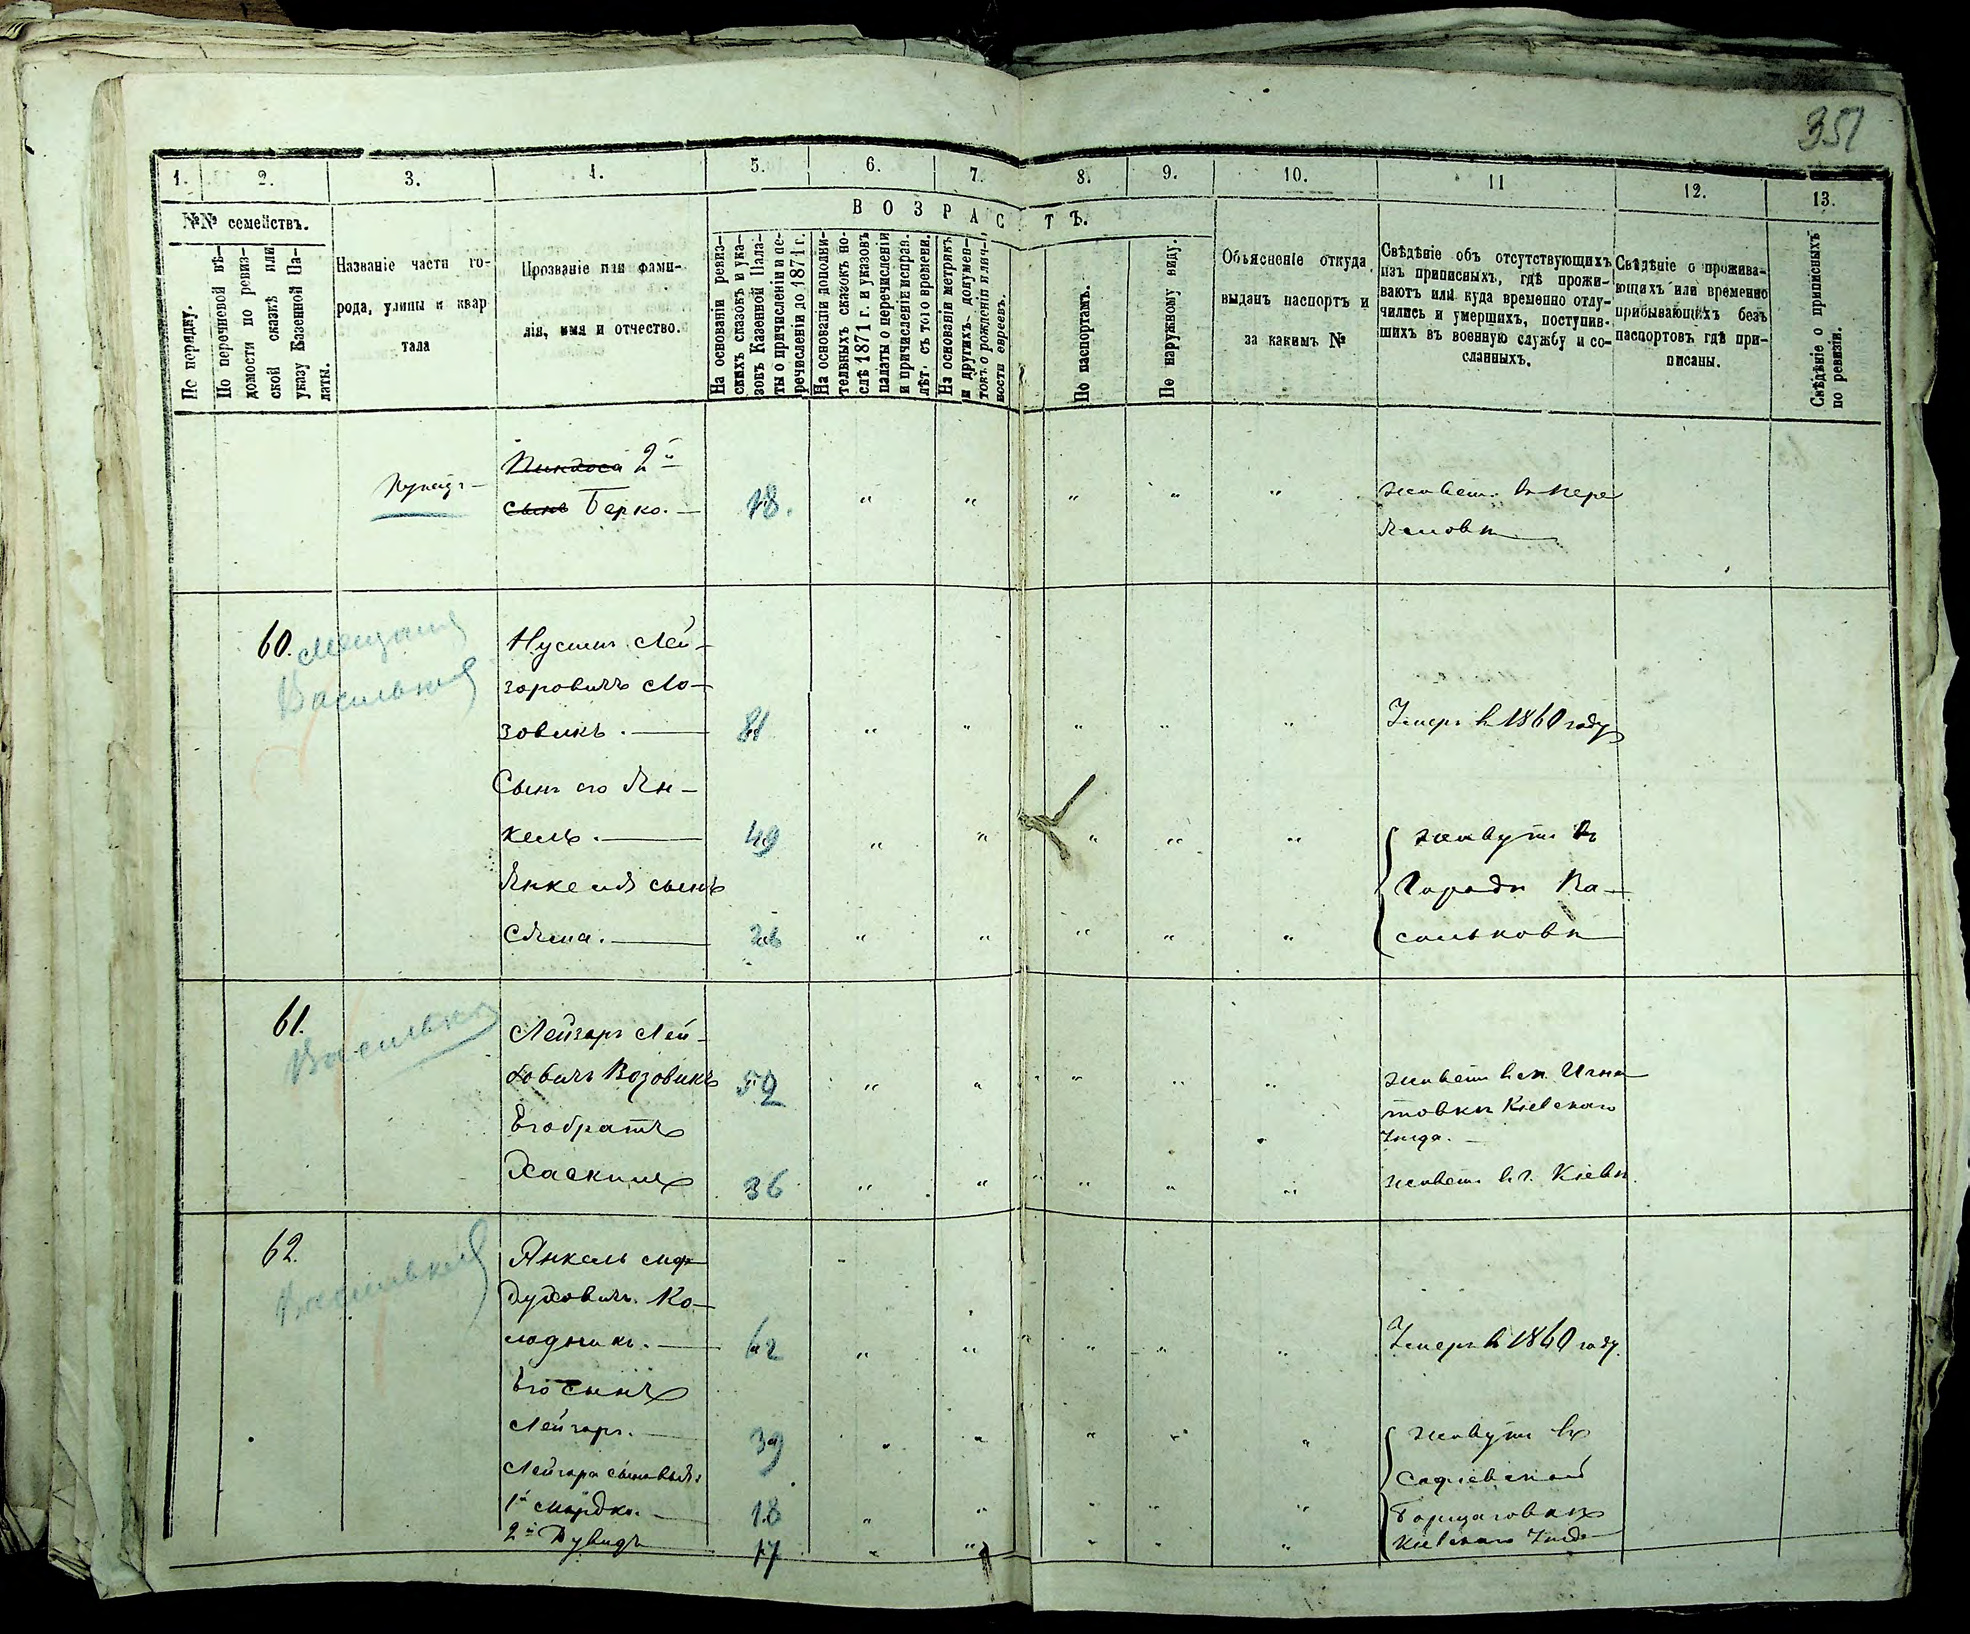 351
1. 2. 3. 4. 5. 6. 7. 8. 9. 10. 11 12. 13.
№№ семействъ.
ВОЗРАСТЪ.
По порядку.
По перечневой вѣ-
домости по ревиз-
ской сказкѣ или
указу Казенной Па-
латы.
Названіе части го-
рода, улицы и квар
тала
Прозваніе или фами-
лія, имя и отчество.
На основаніи ревиз-
скихъ сказокъ и ука-
зовъ Казенной Пала-
ты о причисленіи и пе-
речисленіи до 1871 г.
На основаніи дополни-
тельныхъ сказокъ по-
слѣ 1871 г. и указовъ
палаты о перечисленіи
и причисленіи исправ.
лѣт. съ того времени.
На основаніи метрикъ
и другихъ докумен-
товъ о рожденіи и лич-
ности евреевъ.
По паспортамъ.
По наружному виду.
Объясненіе откуда
выданъ паспортъ и
за какимъ №
Свѣдѣніе объ отсутствующихъ
изъ приписныхъ, гдѣ прожи-
ваютъ или куда временно отлу-
чились и умершихъ, поступив-
шихъ въ военную службу и со-
сланныхъ.
Свѣдѣніе о прожива-
ющихъ или временно
прибывающихъ безъ
паспортовъ гдѣ при-
писаны.
Свѣдѣніе о приписныхъ
по ревизіи.
2й
сынъ Берко. 18. живетъ въ Пере
яловѣ
60. Нусинъ Лей-
зоровичъ Ло-
зовикъ. 81 Умеръ въ 1860 году
Сынъ его Ян-
кель. 49 живутъ въ
Янкеля сынъ городѣ Ва-
Сяма. 26 сильковѣ
61. Лейзаръ Лей-
бовичъ Возовикъ 52 живетъ въ м. Игна-
товкѣ Кіевскаго
Его братъ уѣзда.
Хаскиль 36 живетъ въ г. Кіевѣ.
62. Янкель Мор
духовичъ Ко-
лодникъ. 62 Умеръ въ 1860 году.
Его сынъ
Лейзаръ. 39 живутъ въ
Лейзара сыновья: Софіевской
1й Мордко. 18 Борщаговкѣ
2й Дувидъ 17 Кіевскаго Уѣзда
Васильков